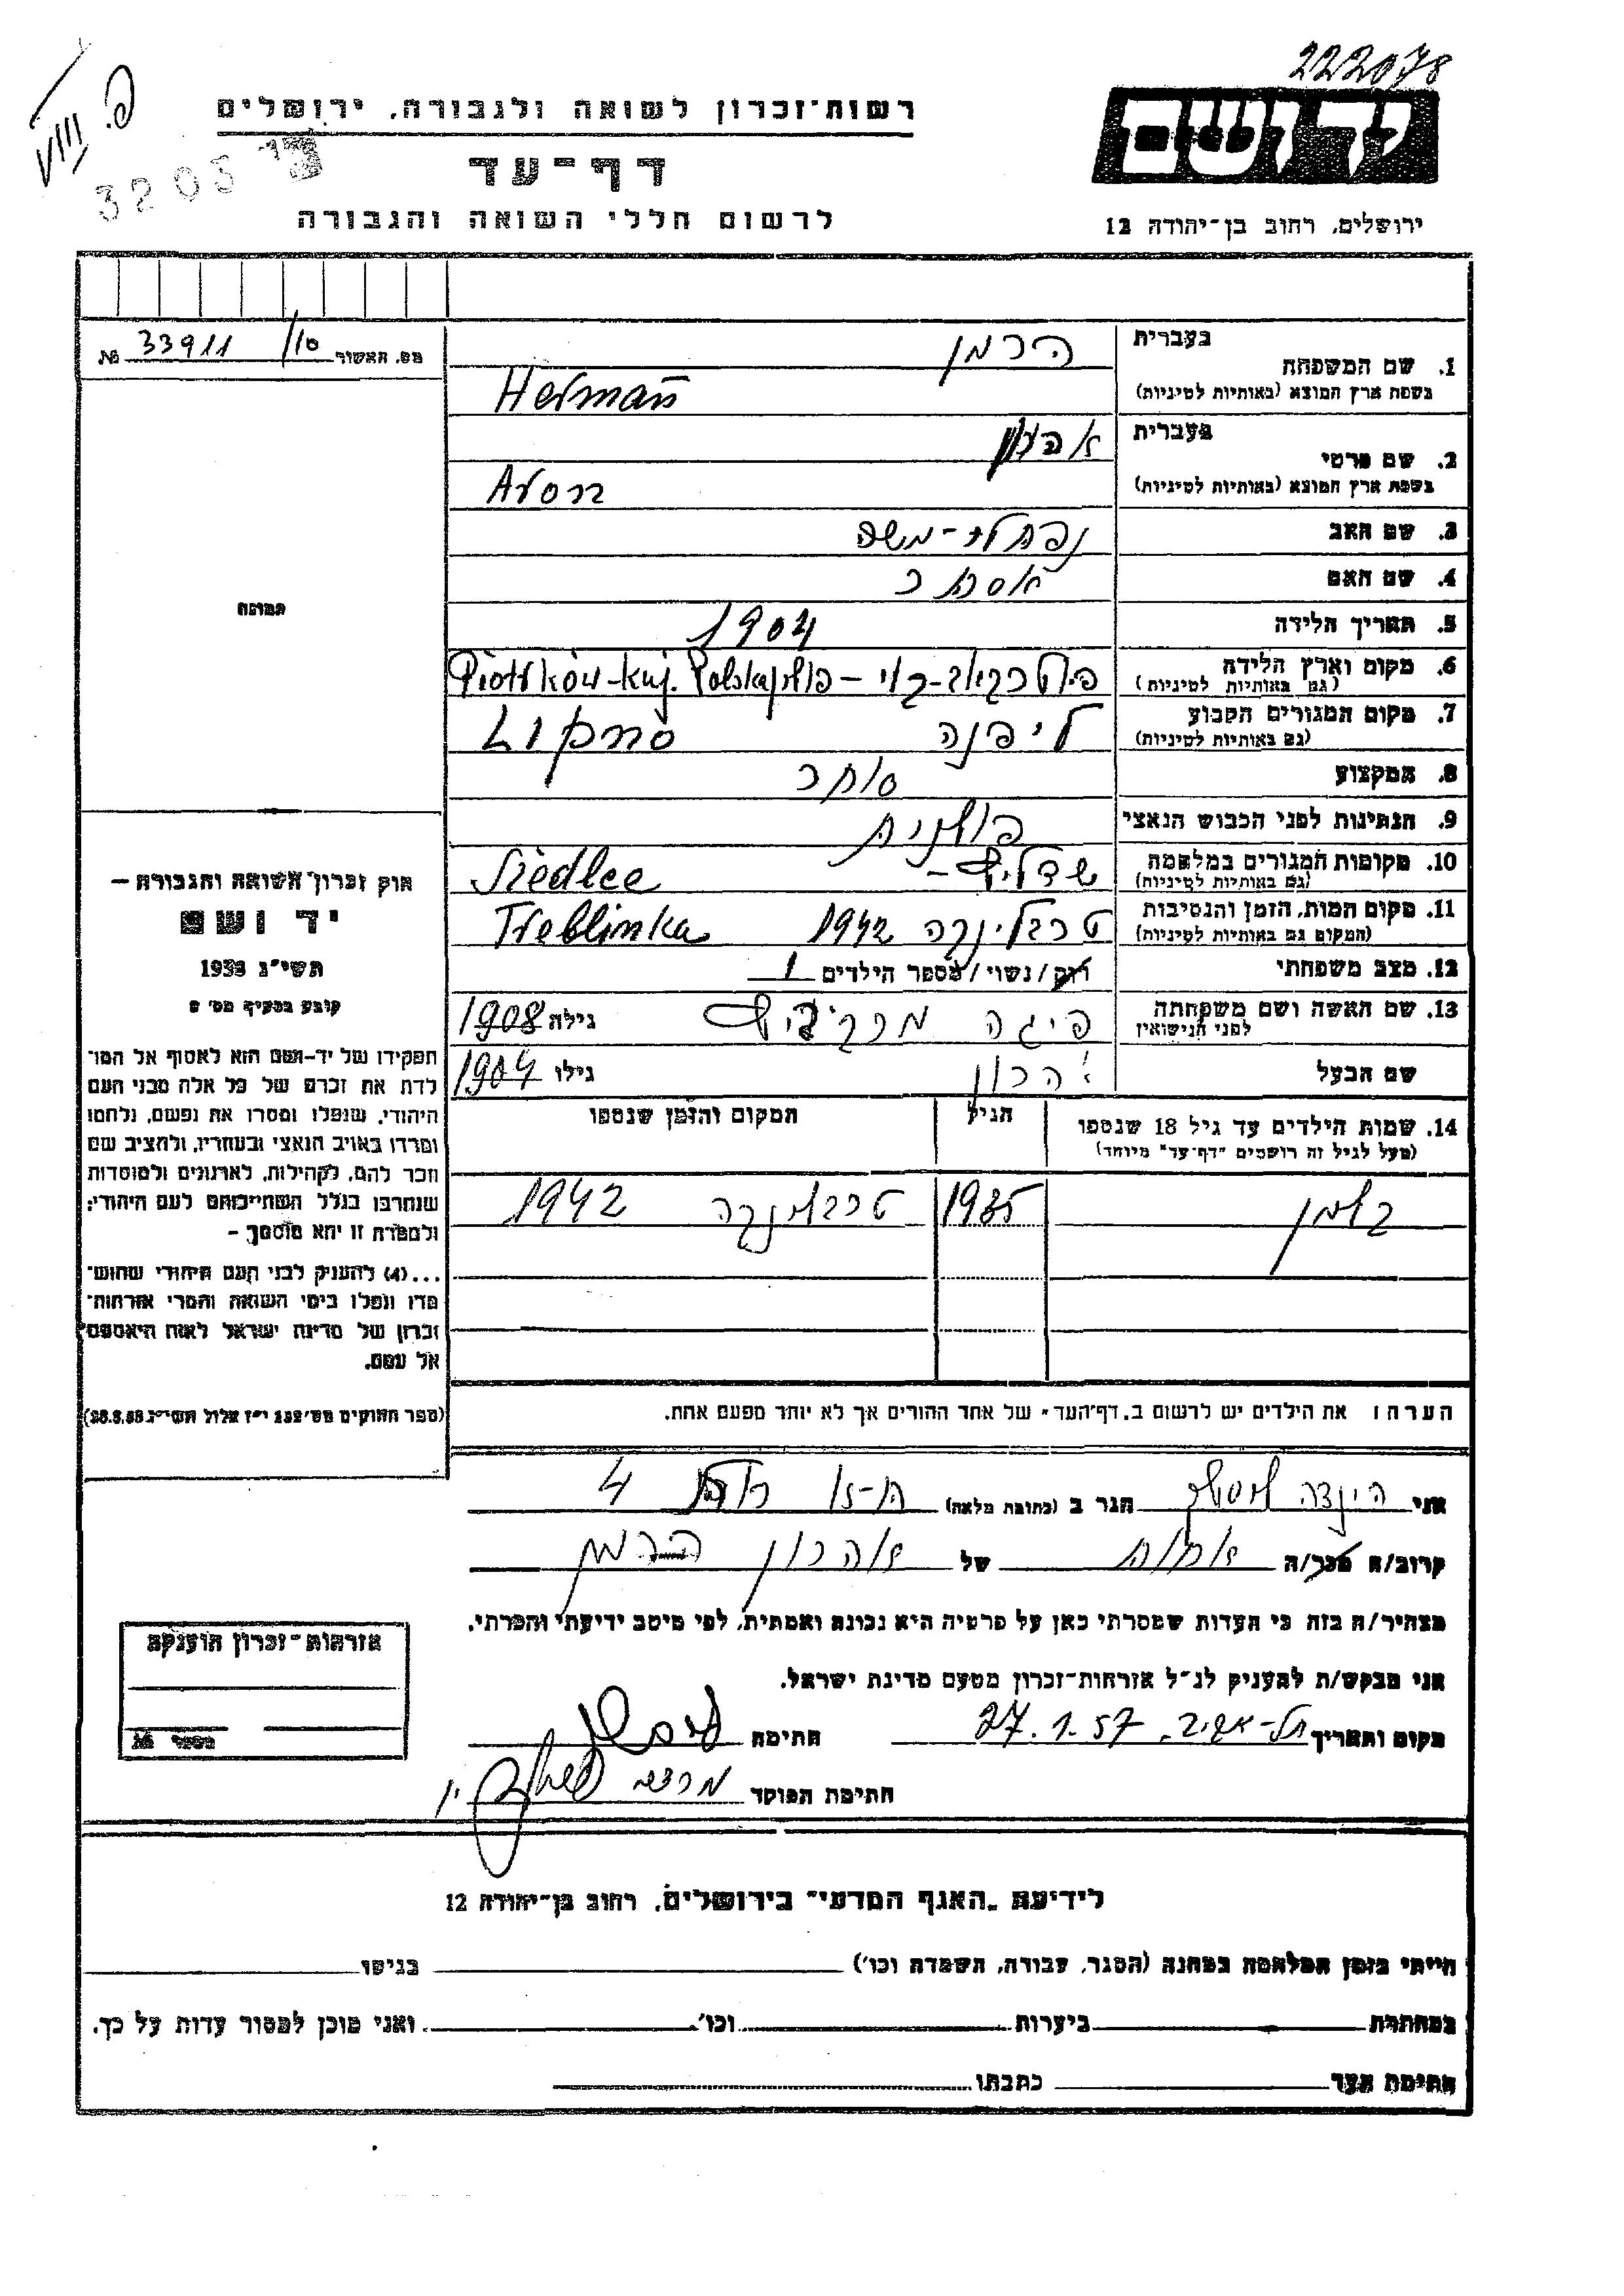 222078
פ. VIII
3205
יד ושם
ירושלים, רחוב בן־יהודה 12
רשות־זכרון לשואה ולגבורה, ירושלים
דף־עד
לרשום חללי השואה והגבורה
מס. האשור 33911 /10 №
תמונה
1. שם המשפחה
בעברית הרמן
בשפת ארץ המוצא (באותיות לטיניות) Herman
2. שם פרטי
בעברית אהרון
בשפת ארץ המוצא (באותיות לטיניות) Aron
3. שם האב נפתלי-משה
4. שם האם אסתר
5. תאריך הלידה 1904
6. מקום וארץ הלידה
(גם באותיות לטיניות) Piotrków-Kuj. Polska
7. מקום המגורים הקבוע ליפנה
(גם באותיות לטיניות) Lipno
8. המקצוע סוחר
9. הנתינות לפני הכבוש הנאצי פולנית
10. מקומות המגורים במלחמה שדליץ -
(גם באותיות לטיניות) Siedlce
11. מקום המות, הזמן והנסיבות טרבלינקה 1942
(המקום גם באותיות לטיניות) Treblinka
12. מצב משפחתי רוק / נשוי / מספר הילדים 1
13. שם האשה ושם משפחתה לפני הנישואין פיגה גילה 1908
שם הבעל אהרון גילו 1904
14. שמות הילדים עד גיל 18 שנספו
(מעל לגיל זה רושמים "דף־עד" מיוחד)
הגיל
המקום והזמן שנספו
1935 טרבלינקה 1942
הערה: את הילדים יש לרשום ב"דף־העד" של אחד ההורים אך לא יותר מפעם אחת.
חוק זכרון השואה והגבורה —
יד ושם
תשי״ג 1953
קובע בסעיף מס׳ 2
תפקידו של יד-ושם הוא לאסוף אל המו־
לדת את זכרם של כל אלה מבני העם
היהודי, שנפלו ומסרו את נפשם, נלחמו
ומרדו באויב הנאצי ובעוזריו, ולהציב שם
וזכר להם, לקהילות, לארגונים ולמוסדות
שנחרבו בגלל השתייכותם לעם היהודי;
ולמטרה זו יהא מוסמך –
...(4) להעניק לבני העם היהודי שהוש־
מדו ונפלו בימי השואה והמרי אזרחות־
זכרון של מדינת ישראל לאות היאספם
אל עמם.
(ספר החוקים מס׳ 132 י״ז אלול תשי״ג 28.8.53)
אני הינדה הגר ב (כתובת מלאה) ת-א 4
קרוב/ה מכר/ה אחות של אהרון הרמן
מצהיר/ה בזה כי העדות שמסרתי כאן על פרטיה היא נכונה ואמתית, לפי מיטב ידיעתי והכרתי.
אני מבקש/ת להעניק לנ״ל אזרחות־זכרון מטעם מדינת ישראל.
מקום ותאריך תל-אביב. 27.1.57 חתימה
חתימת הפוקד
אזרחות־זכרון הוענקה
מספר №
לידיעת „האגף המדעי" בירושלים, רחוב בן־יהודה 12
הייתי בזמן המלחמה במחנה (הסגר, עבודה, השמדה וכו׳) בגיטו
במחתרת ביערות וכו׳ ואני מוכן למסור עדות על כך.
חתימת העד כתבתו